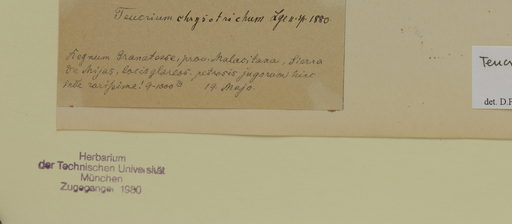 Teucrium chrysotrichum Lge n. sp. 1880
Regnum Granatense, prov. Malacitana, Sierra
de Mijas, locis glareos. petrosis jugorum hinc
inde rarissime! 9-1000
14 Majo
Teucr
det. D.
Herbarium
der Technischen Universität
München
Zugegangen 1980